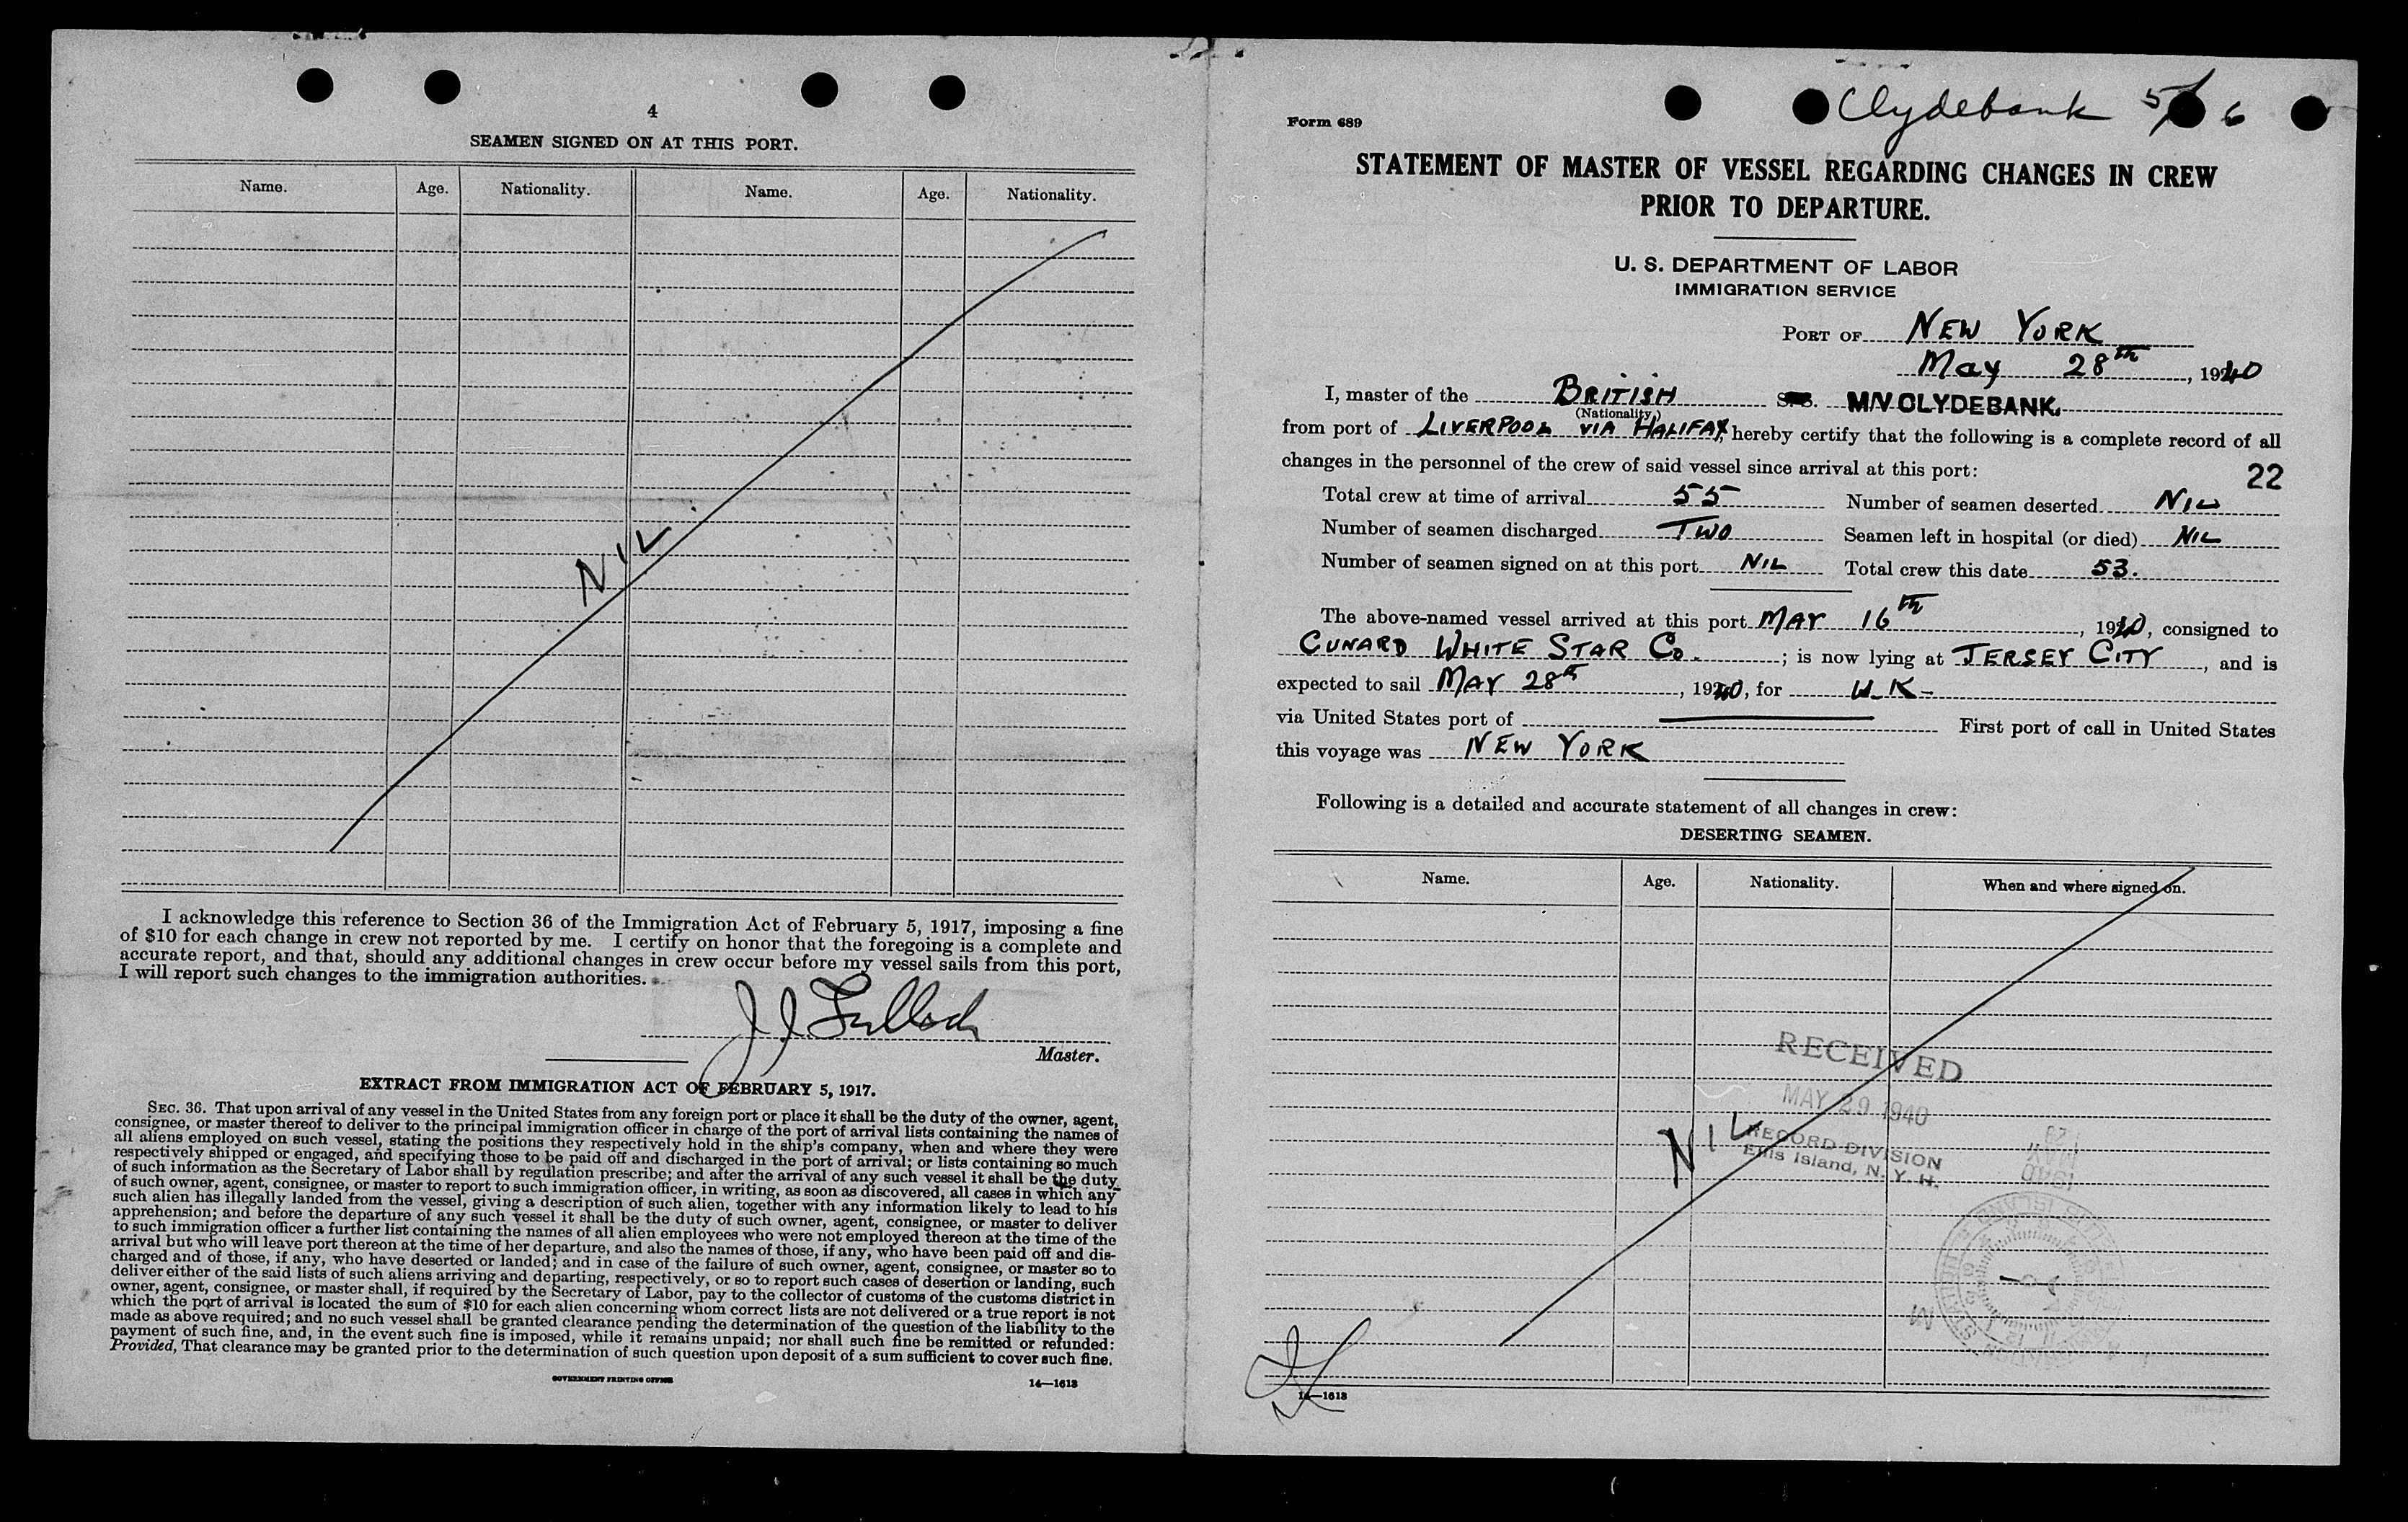 4
SEAMEN SIGNED ON AT THIS PORT.
Name. Age. Nationality. Name. Age. Nationality.
NIL
I acknowledge this reference to Section 36 of the Immigration Act of February 5, 1917, imposing a fine
of $10 for each change in crew not reported by me. I certify on honor that the foregoing is a complete and
accurate report, and that, should any additional changes in crew occur before my vessel sails from this port,
I will report such changes to the immigration authorities.
Master.
EXTRACT FROM IMMIGRATION ACT OF FEBRUARY 5, 1917.
SEC. 36. That upon arrival of any vessel in the United States from any foreign port or place it shall be the duty of the owner, agent,
consignee, or master thereof to deliver to the principal immigration officer in charge of the port of arrival lists containing the names of
all aliens employed on such vessel, stating the positions they respectively hold in the ship's company, when and where they were
respectively shipped or engaged, and specifying those to be paid off and discharged in the port of arrival; or lists containing so much
of such information as the Secretary of Labor shall by regulation prescribe; and after the arrival of any such vessel it shall be the duty
of such owner, agent, consignee, or master to report to such immigration officer, in writing, as soon as discovered, all cases in which any
such alien has illegally landed from the vessel, giving a description of such alien, together with any information likely to lead to his
apprehension; and before the departure of any such vessel it shall be the duty of such owner, agent, consignee, or master to deliver
to such immigration officer a further list containing the names of all alien employees who were not employed thereon at the time of the
arrival but who will leave port thereon at the time of her departure, and also the names of those, if any, who have been paid off and dis-
charged and of those, if any, who have deserted or landed; and in case of the failure of such owner, agent, consignee, or master so to
deliver either of the said lists of such aliens arriving and departing, respectively, or so to report such cases of desertion or landing, such
owner, agent, consignee, or master shall, if required by the Secretary of Labor, pay to the collector of customs of the customs district in
which the port of arrival is located the sum of $10 for each alien concerning whom correct lists are not delivered or a true report is not
made as above required; and no such vessel shall be granted clearance pending the determination of the question of the liability to the
payment of such fine, and, in the event such fine is imposed, while it remains unpaid; nor shall such fine be remitted or refunded:
Provided, That clearance may be granted prior to the determination of such question upon deposit of a sum sufficient to cover such fine.
GOVERNMENT PRINTING OFFICE 14—1613
Clydebank 5/ 6
Form 689
STATEMENT OF MASTER OF VESSEL REGARDING CHANGES IN CREW
PRIOR TO DEPARTURE.
U. S. DEPARTMENT OF LABOR
IMMIGRATION SERVICE
PORT OF NEW YORK
May 28th, 1940
I, master of the BRITISH S.S. M/V CLYDEBANK.
(Nationality)
from port of LIVERPOOL VIA HALIFAX, hereby certify that the following is a complete record of all
changes in the personnel of the crew of said vessel since arrival at this port:
22
Total crew at time of arrival 55 Number of seamen deserted NIL
Number of seamen discharged TWO Seamen left in hospital (or died) NIL
Number of seamen signed on at this port NIL Total crew this date 53.
The above-named vessel arrived at this port MAY 16th, 1940, consigned to
CUNARD WHITE STAR Co.; is now lying at JERSEY CITY, and is
expected to sail MAY 28th, 1940, for U.K-
via United States port of First port of call in United States
this voyage was NEW YORK
Following is a detailed and accurate statement of all changes in crew:
DESERTING SEAMEN.
Name. Age. Nationality. When and where signed on.
RECEIVED
MAY 29 1940
NIL
RECORD DIVISION
Ellis Island, N. Y. H.
14—1613